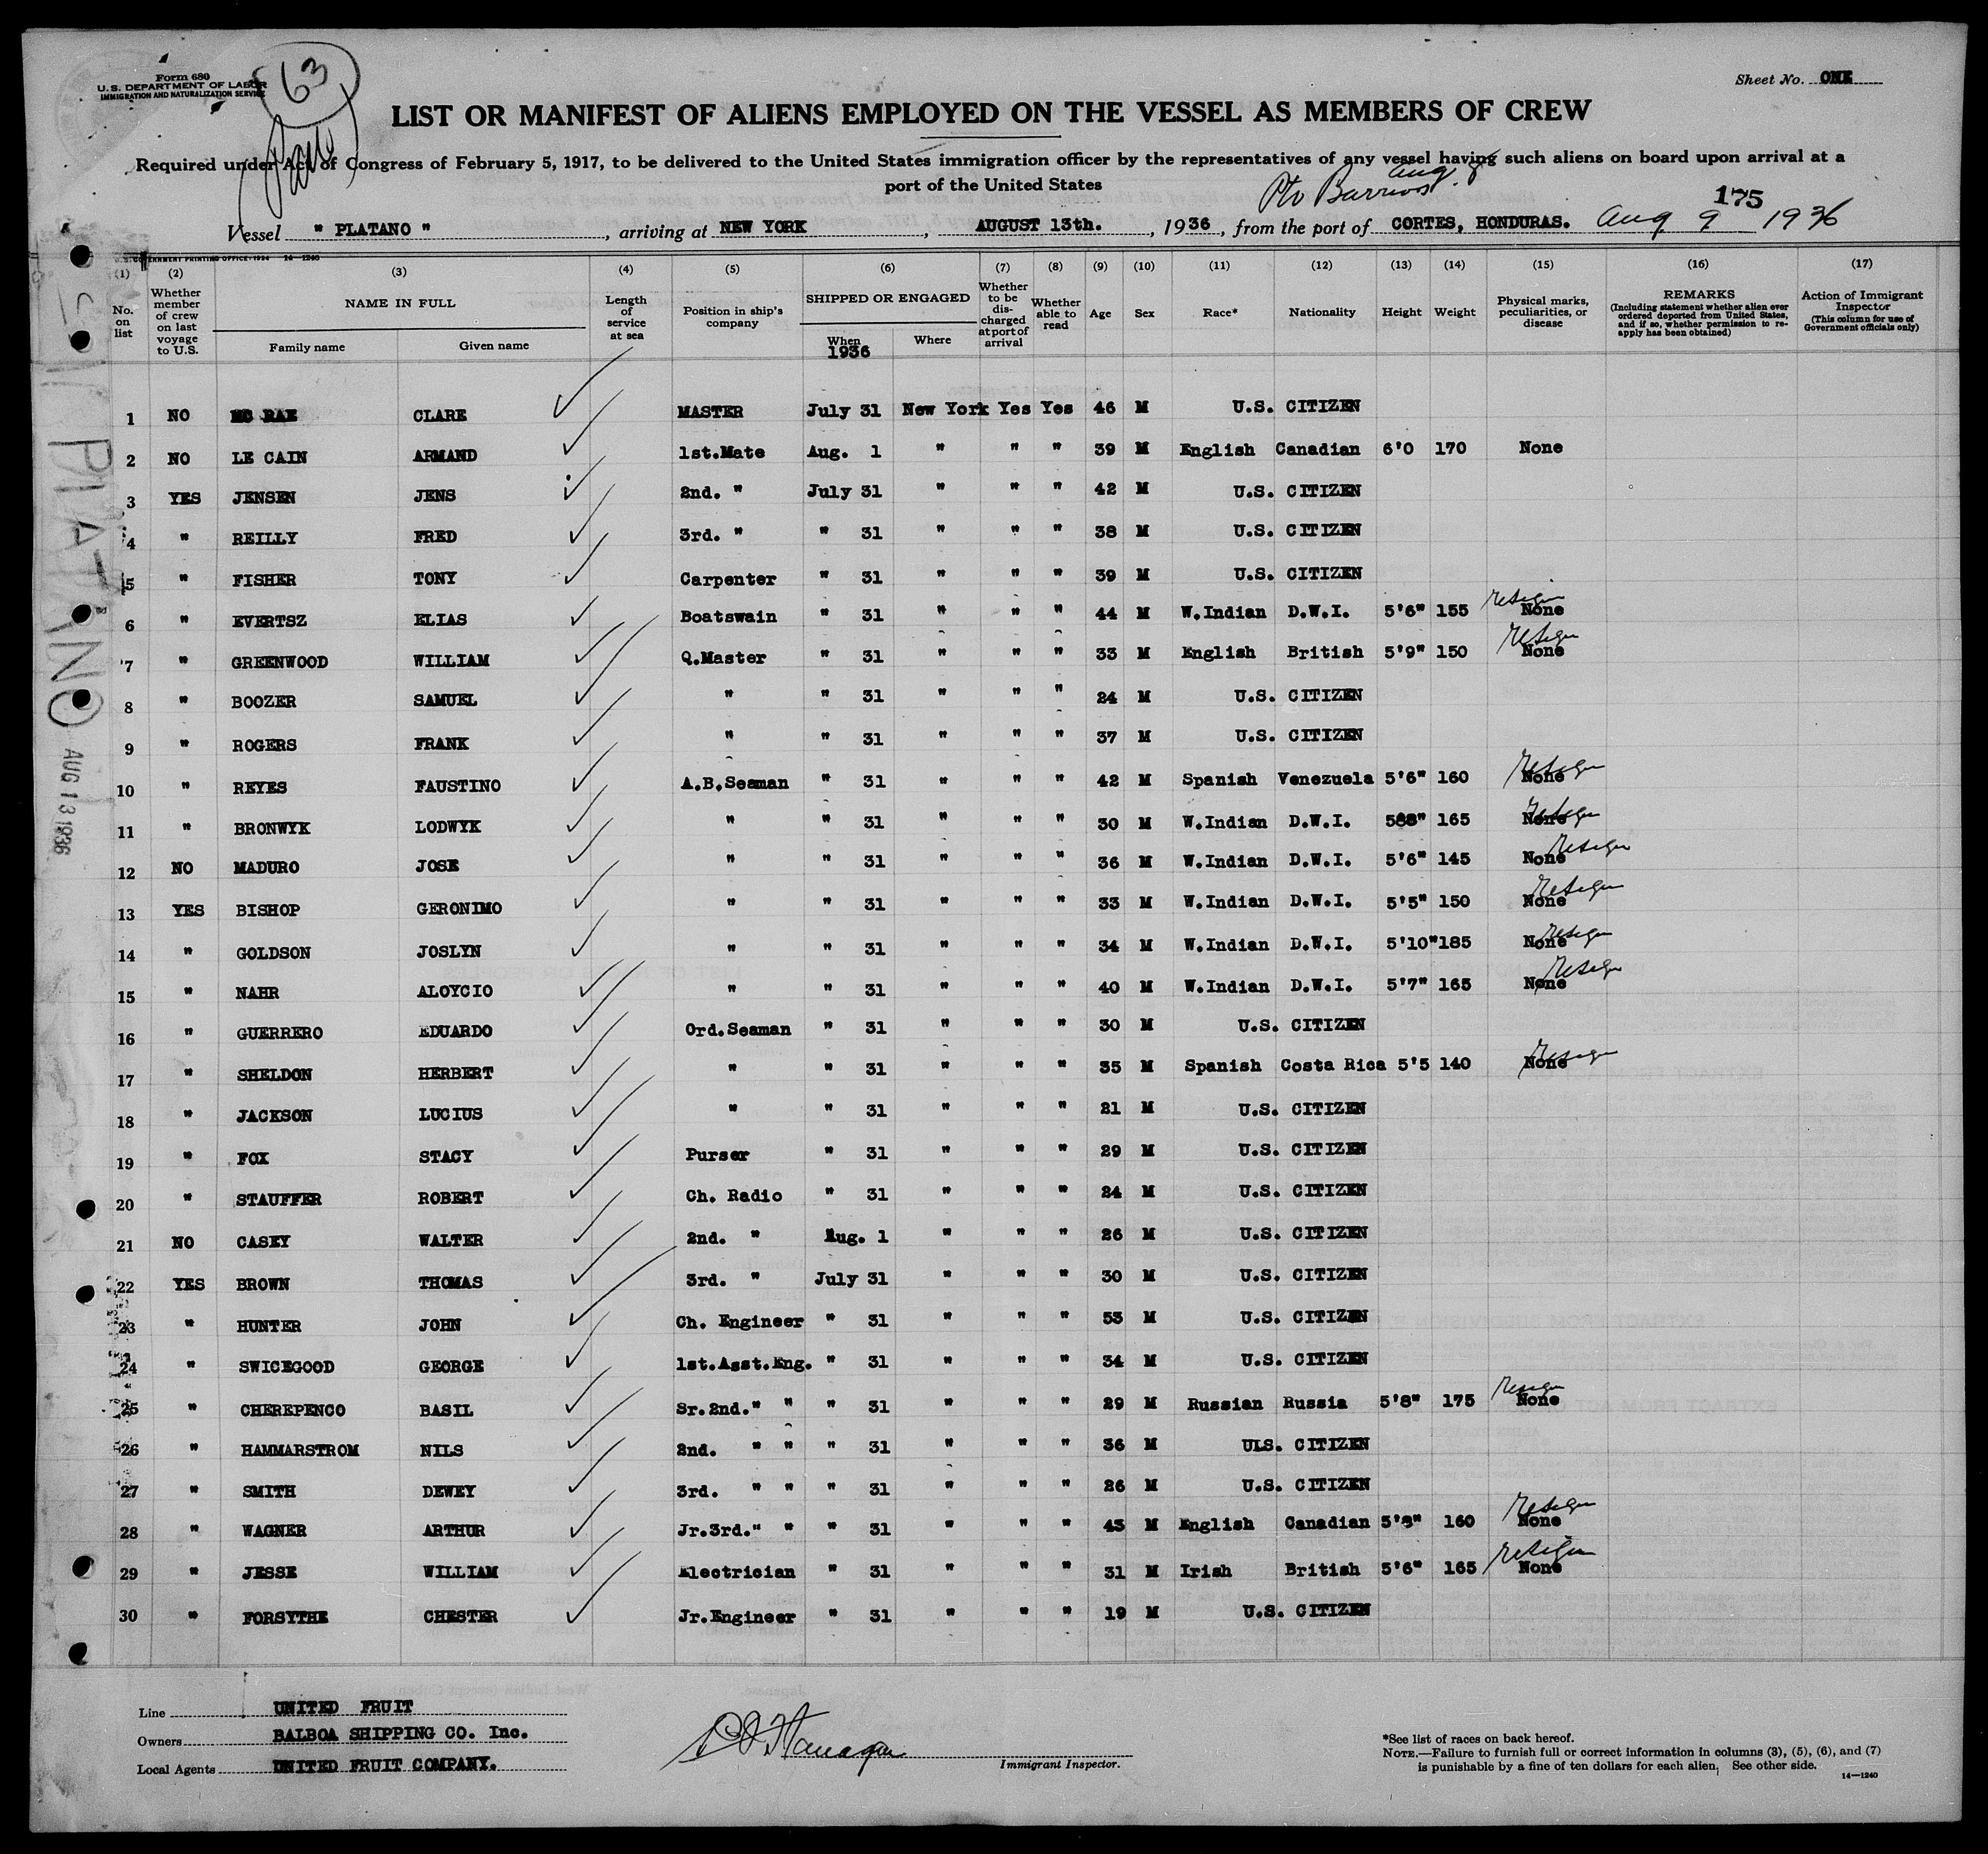 Form 680
U.S. DEPARTMENT OF LABOR
IMMIGRATION AND NATURALIZATION SERVICE
63
Sheet No. ONE
LIST OR MANIFEST OF ALIENS EMPLOYED ON THE VESSEL AS MEMBERS OF CREW
Required under Act of Congress of February 5, 1917, to be delivered to the United States immigration officer by the representatives of any vessel having such aliens on board upon arrival at a
port of the United States
Pto Barrios Aug 8
175
Vessel " PLATANO ", arriving at NEW YORK, AUGUST 13th., 1936, from the port of CORTES, HONDURAS. Aug 9 1936
U.S. GOVERNMENT PRINTING OFFICE: 1934 14-1240
(1) (2) (3) (4) (5) (6) (7) (8) (9) (10) (11) (12) (13) (14) (15) (16) (17)
No. on list
Whether member of crew on last voyage to U.S.
NAME IN FULL
Family name Given name
Length of service at sea
Position in ship's company
SHIPPED OR ENGAGED
When Where
1936
Whether to be discharged at port of arrival
Whether able to read
Age Sex Race* Nationality Height Weight
Physical marks, peculiarities, or disease
REMARKS
(Including statement whether alien ever ordered deported from United States, and if so, whether permission to reapply has been obtained)
Action of Immigrant Inspector
(This column for use of Government officials only)
1 NO MC RAE CLARE MASTER July 31 New York Yes Yes 46 M U.S. CITIZEN
2 NO LE CAIN ARMAND 1st.Mate Aug. 1 " " " 39 M English Canadian 6'0 170 None
3 YES JENSEN JENS 2nd. " July 31 " " " 42 M U.S. CITIZEN
4 " REILLY FRED 3rd. " " 31 " " " 38 M U.S. CITIZEN
5 " FISHER TONY Carpenter " 31 " " " 39 M U.S. CITIZEN
6 " EVERTSZ ELIAS Boatswain " 31 " " " 44 M W.Indian D.W.I. 5'6" 155 None resign
7 " GREENWOOD WILLIAM Q.Master " 31 " " " 33 M English British 5'9" 150 None resign
8 " BOOZER SAMUEL " " 31 " " " 24 M U.S. CITIZEN
9 " ROGERS FRANK " " 31 " " " 37 M U.S. CITIZEN
10 " REYES FAUSTINO A.B.Seaman " 31 " " " 42 M Spanish Venezuela 5'6" 160 None resign
11 " BRONWYK LODWYK " " 31 " " " 30 M W.Indian D.W.I. 588" 165 None resign
12 NO MADURO JOSE " " 31 " " " 36 M W.Indian D.W.I. 5'6" 145 None resign
13 YES BISHOP GERONIMO " " 31 " " " 33 M W.Indian D.W.I. 5'5" 150 None resign
14 " GOLDSON JOSLYN " " 31 " " " 34 M W.Indian D.W.I. 5'10" 185 None resign
15 " NAHR ALOYCIO " " 31 " " " 40 M W.Indian D.W.I. 5'7" 165 None resign
16 " GUERRERO EDUARDO Ord.Seaman " 31 " " " 30 M U.S. CITIZEN
17 " SHELDON HERBERT " " 31 " " " 35 M Spanish Costa Rica 5'5 140 None resign
18 " JACKSON LUCIUS " " 31 " " " 21 M U.S. CITIZEN
19 " FOX STACY Purser " 31 " " " 29 M U.S. CITIZEN
20 " STAUFFER ROBERT Ch. Radio " 31 " " " 24 M U.S. CITIZEN
21 NO CASEY WALTER 2nd. " Aug. 1 " " " 26 M U.S. CITIZEN
22 YES BROWN THOMAS 3rd. " July 31 " " " 30 M U.S. CITIZEN
23 " HUNTER JOHN Ch. Engineer " 31 " " " 53 M U.S. CITIZEN
24 " SWICEGOOD GEORGE 1st.Asst.Eng. " 31 " " " 34 M U.S. CITIZEN
25 " CHEREPENCO BASIL Sr.2nd." " " 31 " " " 29 M Russian Russia 5'8" 175 None resign
26 " HAMMARSTROM NILS 2nd. " " " 31 " " " 36 M UIS. CITIZEN
27 " SMITH DEWEY 3rd. " " " 31 " " " 26 M U.S. CITIZEN
28 " WAGNER ARTHUR Jr.3rd." " " 31 " " " 43 M English Canadian 5'8" 160 None resign
29 " JESSE WILLIAM Electrician " 31 " " " 31 M Irish British 5'6" 165 None resign
30 " FORSYTHE CHESTER Jr.Engineer " 31 " " " 19 M U.S. CITIZEN
PLATANO
AUG 13 1936
Line UNITED FRUIT
Owners BALBOA SHIPPING CO. Inc.
Local Agents UNITED FRUIT COMPANY.
Immigrant Inspector.
*See list of races on back hereof.
NOTE.—Failure to furnish full or correct information in columns (3), (5), (6), and (7)
is punishable by a fine of ten dollars for each alien. See other side.
14—1240